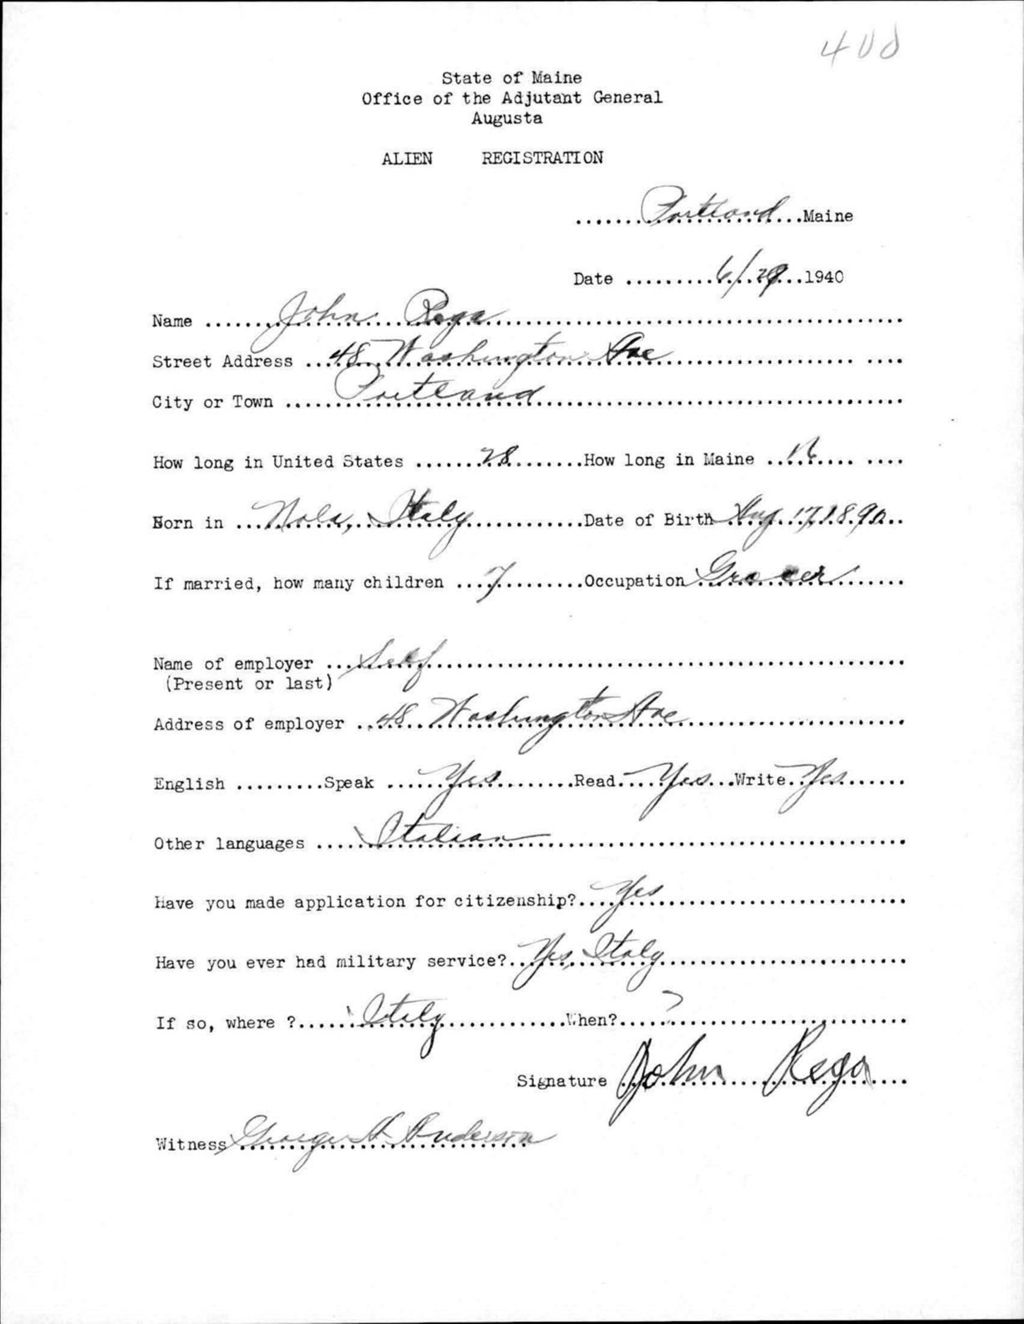 400
State of Maine
Office of the Adjutant General
Augusta
ALIEN REGISTRATION
.......Portland...Maine
Date .........6/29...1940
Name .......John Rega.......
Street Address ...48 Washington Ave.......
City or Town ......Portland.......
How long in United States ......28........How long in Maine ..16.... ....
Born in ...Nola, Italy............Date of Birth Aug 17, 1890..
If married, how many children ...7.........Occupation Grocer.......
Name of employer ...Self.......
(Present or last)
Address of employer ..48 Washington Ave.......
English .........Speak .....Yes........Read....Yes...Write.Yes......
Other languages .....Italian.......
Have you made application for citizenship?....Yes.......
Have you ever had military service?..Yes, Italy.......
If so, where ?......Italy............When?.....?.......
Signature John Rega....
Witness George H. Anderson